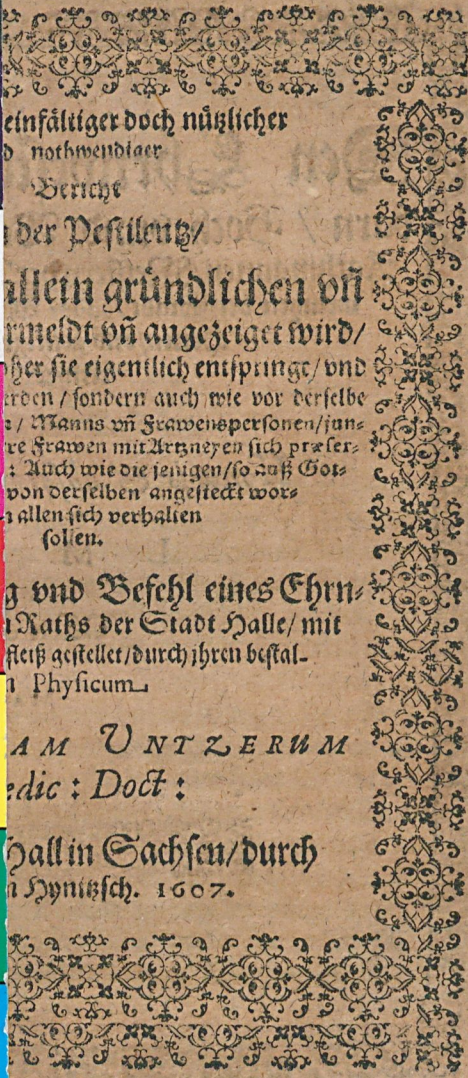 einfältiger doch nützlicher
d nothwendiger
Bericht
der Pestilentz/
allein gründlichen vñ
rmeldt vñ angezeiget wird/
oher sie eigentlich entspringe/vnd
erden / sondern auch wie vor derselbe
/ Manns vñ Frawenspersonen/jun-
re Frawen mit Artzneyen sich præser-
: Auch wie die jenigen/so auß Got-
von derselben angesteckt wor-
n allen sich verhalten
sollen.
g vnd Befehl eines Ehrn-
Raths der Stadt Halle/ mit
fleiß gestellet/durch jhren bestal-
n Physicum
AM UNTZERUM
edic : Doct :
Hall in Sachsen/durch
n Hynitzsch. 1607.